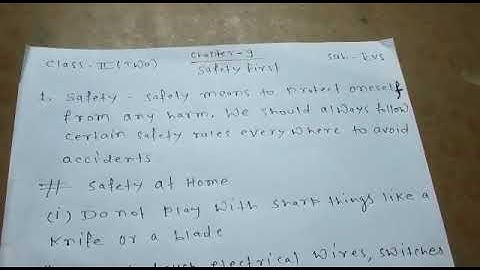 Class - II (Two) Chapter - 9 Sub - EVS
Safety First
1. Safety - Safety means to protect oneself
from any harm. We should always follow
certain safety rules every where to avoid
accidents
# Safety at Home
(i) Do not play with sharp things like a
knife or a blade
touch electrical wires, switches